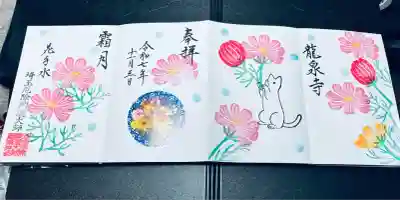 龍泉寺
奉拝
令和七年
十一月三日
霜月
花手水